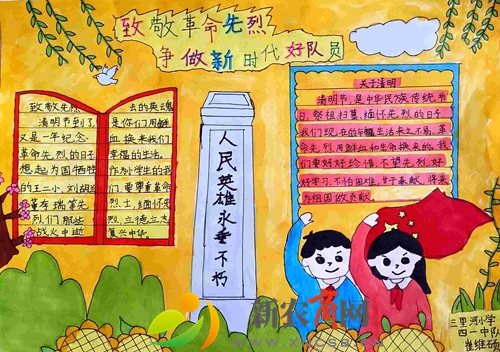 致敬革命先烈
争做新时代好队员
致敬先烈
清明节到了,
又是一年纪念
革命先烈的日子
想起为国牺牲
的王二小、刘胡兰
董存瑞等先
烈们那些
战火中逝
去的英魂
是你们用鲜
血换来我们
幸福的生活。
作为小学生的我
们,要尊重革命
烈士,缅怀先
烈,立德立志
复兴中华。
人民英雄永垂不朽
关于清明
清明节,是中华民族传统节
日,祭祖扫墓,缅怀先烈的日子。
我们现在的幸福生活来之不易,革
命先烈用鲜血和生命换来的。我
们要好好珍惜,不忘先烈,好
好学习,不怕困难,甘于奉献,将来
为祖国做贡献。
三里河小学
四一中队
崔维硕
新农商网
www.xncsb.cn